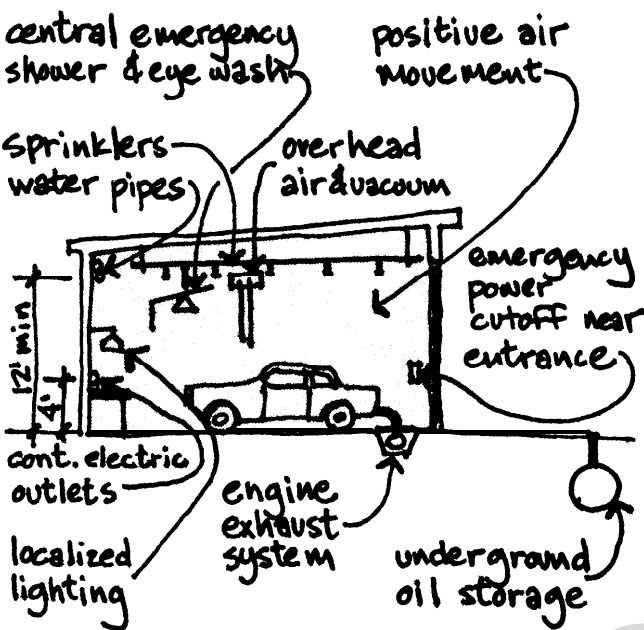 central emergency
shower & eye wash
positive air
movement
sprinklers
water pipes
overhead
air & vacoum
emergency
power
cutoff near
entrance
12' min
4'
cont. electric
outlets
engine
exhaust
system
localized
lighting
underground
oil storage